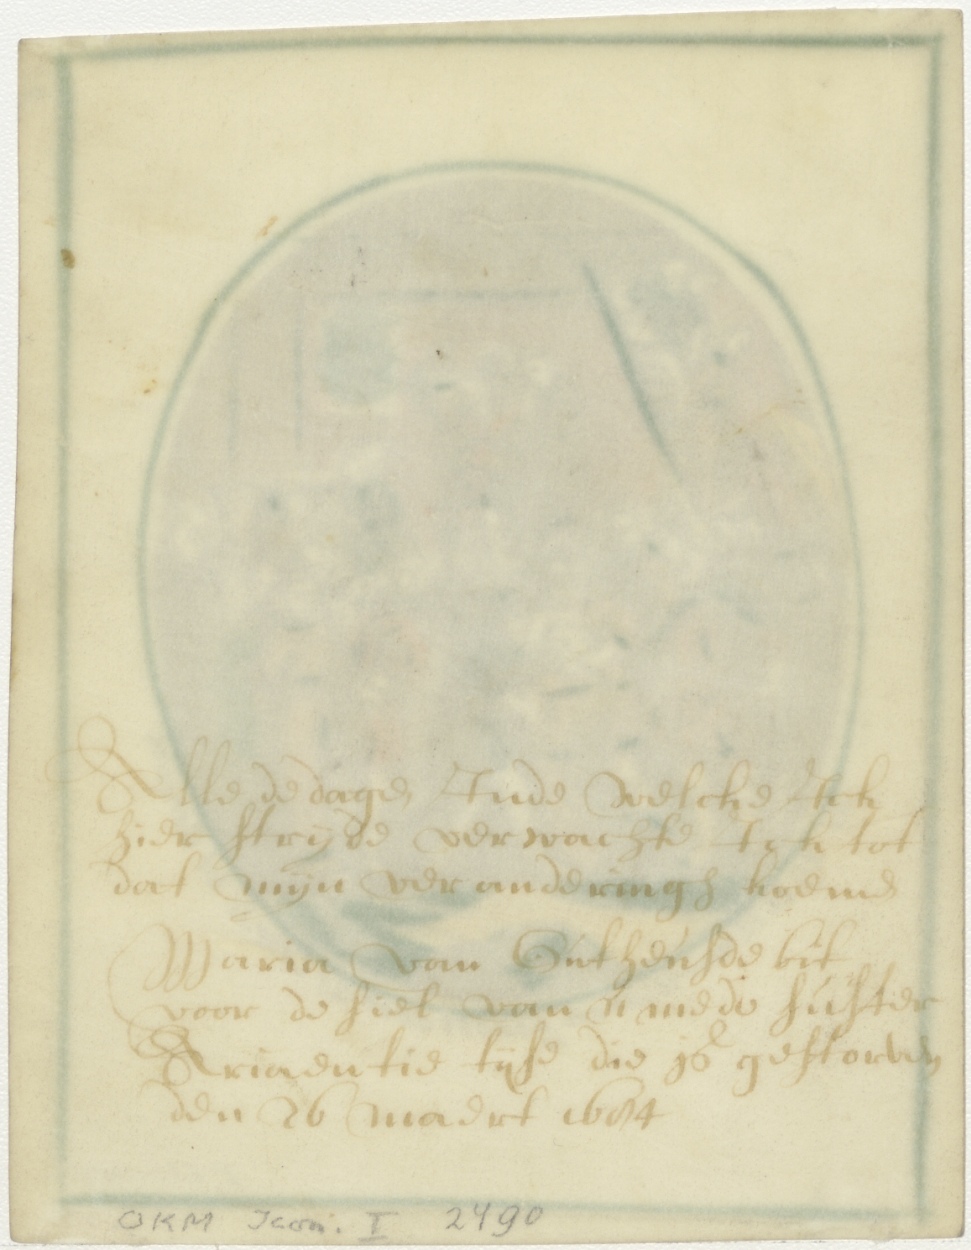 Alle de dage, Inde welcke Ick
hier strijde verwachte Ick tot
dat mijn veranderingh koeme
Maria van bit
voor de siel van u mede suster
Ariaentie tijse die is gestorven
den 26 maert 1684
OKM Icon. I 2490